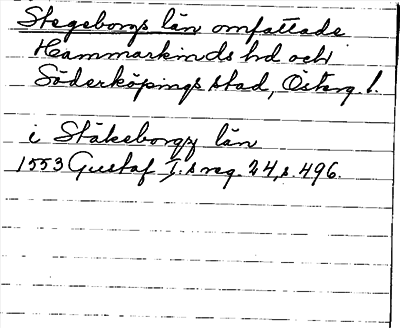 Stegeborgs län omfattade
Hammarkinds hd och
Söderköpings stad, Österg. l.
i Stäkeborgz län
1553 Gustaf I:s reg. 24, s. 496.